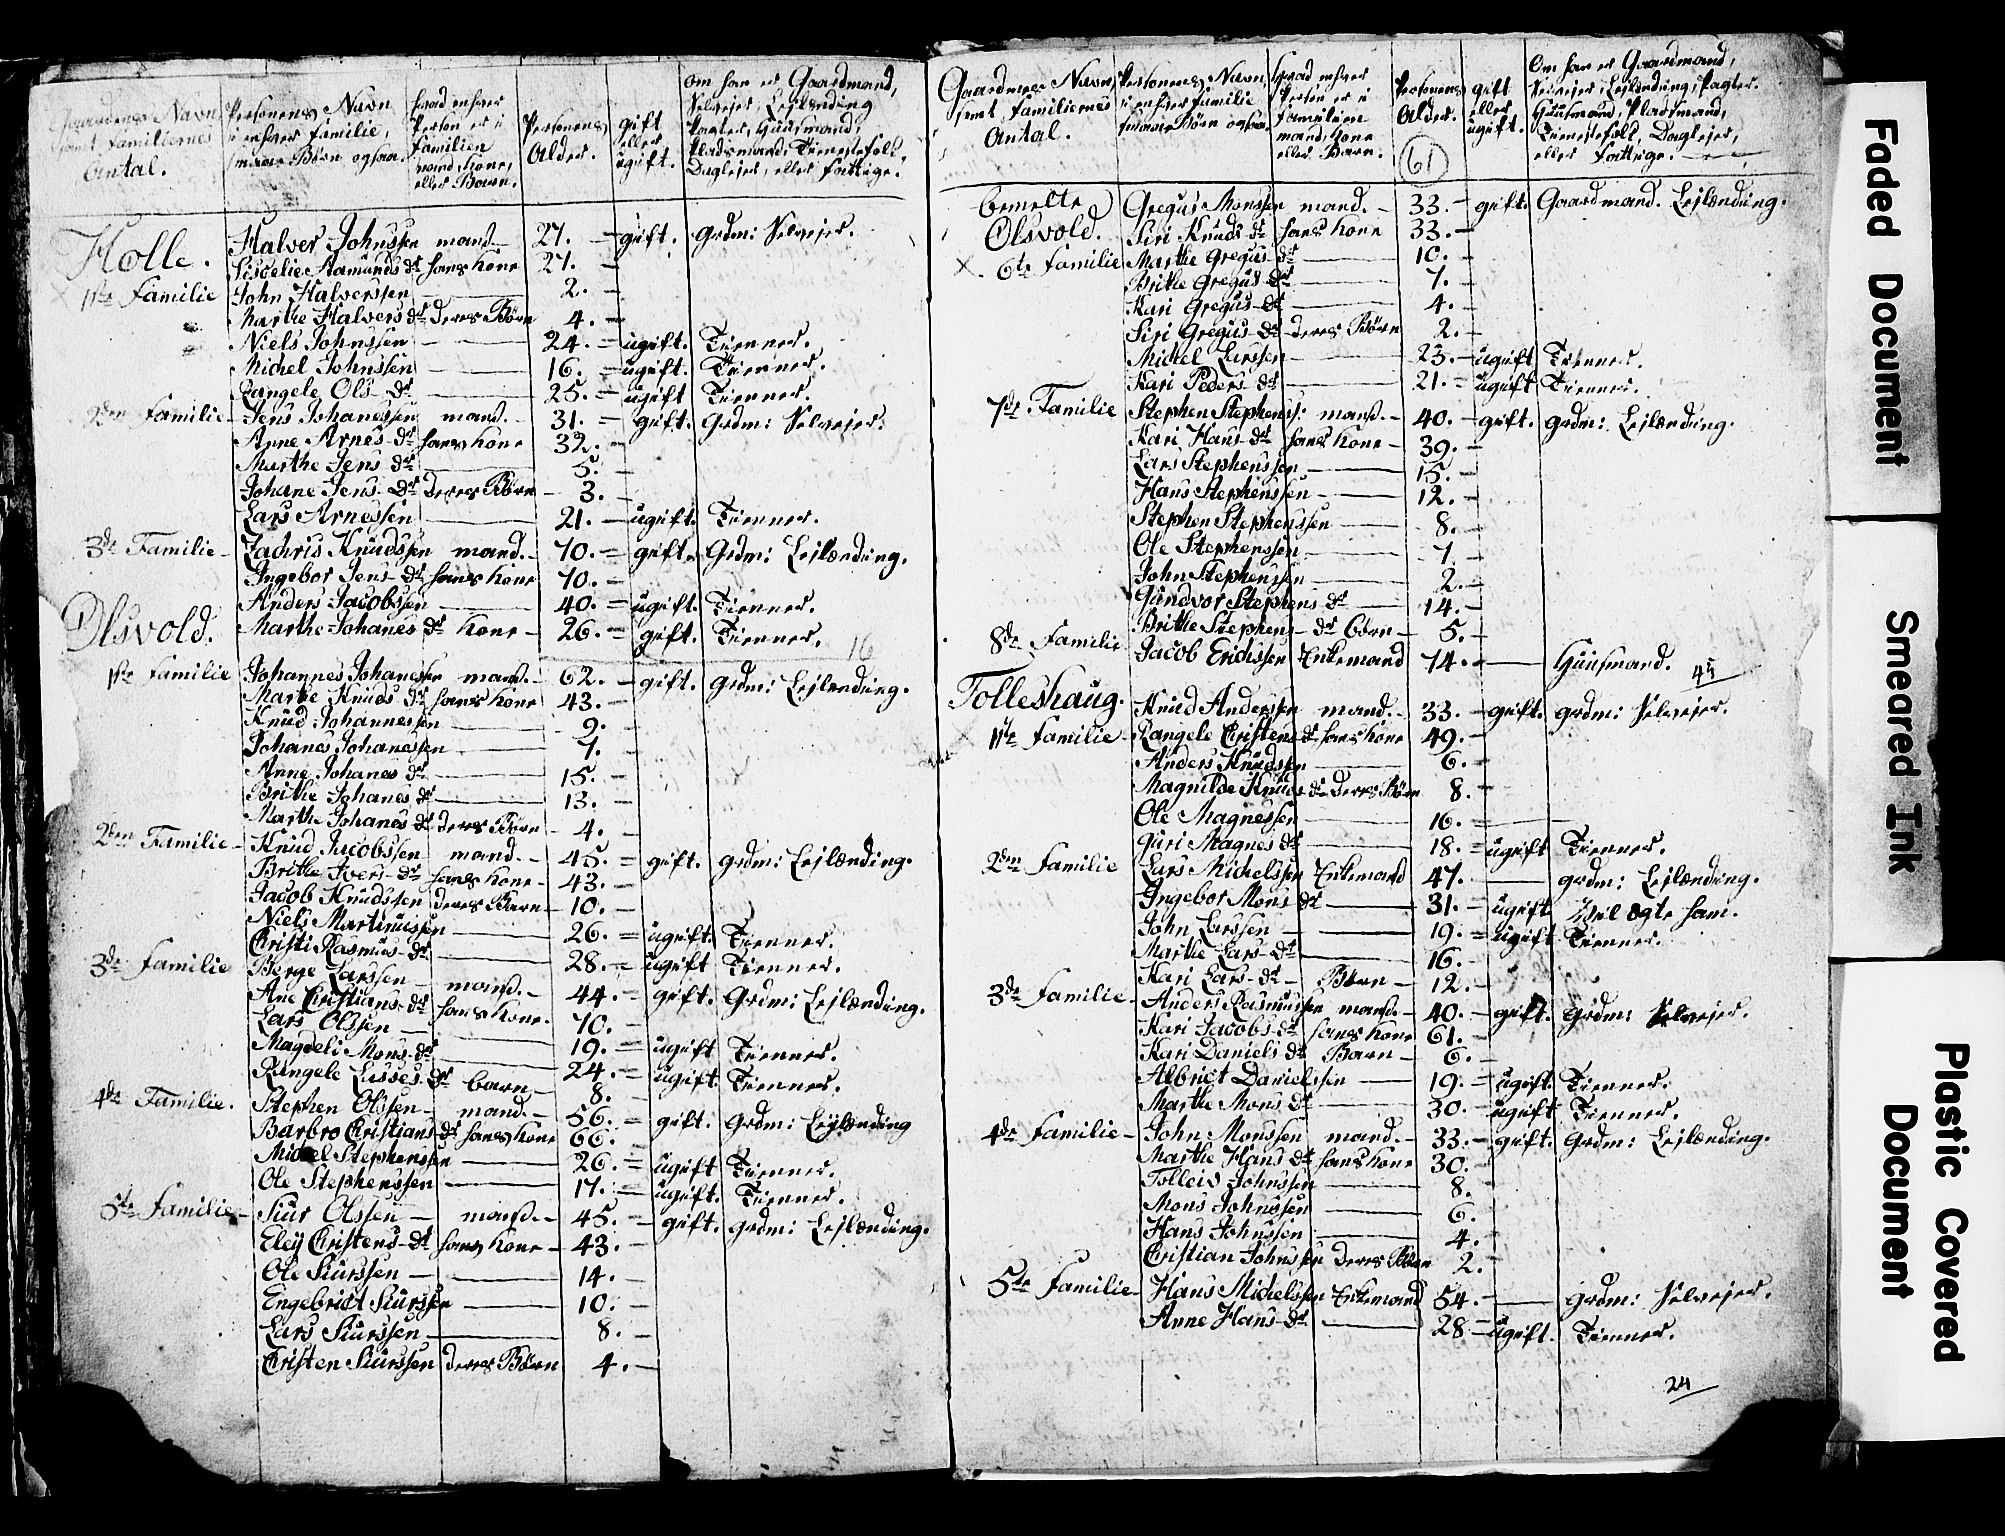 Gaardenes Navn samt Familiernes Antal.
Personens Navn i enhver Familie, smaae Børn ogsaa.
hvad enhver Person er i Familien mand, kone, eller Barn.
Personens Alder.
gift eller ugift.
om han er Gaardmand, Selvejer, Lejlænding Pagter, Huusmand, Pladsmand, Tienestefolk, Daglejer, eller fattige.
Holle. Halver Johnssen mand 27. gift. grdm: Selvejer.
Aamunds dr hans kone 27.
1ste Familie John Halverssen 2.
Marthe Halvers dr deres Børn 4.
Niels Johnssen 24. ugift. Tienner.
Michel Johnssen 16. ugift. Tienner.
Rangele Ols dr 25. ugift Tienner.
2den Familie Jens Johanessen mand. 31. gift. Grdm: Selvejer.
Anne Arnes dr hans kone 32.
Marthe Jens dr 5.
Johane Jens dr deres Børn 3.
Lars Arnessen 21. ugift. Tienner.
3de Familie Zachris Knudssen mand. 70. gift. Grdm: Lejlænding.
Ingebor Jens dr hans kone 70.
Anders Jacobssen 40. ugift. Tienner.
Olsvold. Marthe Johanes dr kone 26. gift. Tienner. 16
1ste Familie Johannes Johanessen mand. 62. gift. grdm: Lejlænding.
Marthe Knuds dr hans kone 43.
Knud Johannessen 9.
Johanes Johanessen 7.
Anne Johanes dr 15.
Brithe Johanes dr 13.
Marthe Johanes dr deres Børn 4.
2den Familie Knud Jacobssen mand. 45. gift. grdm: Lejlænding.
Brithe Ivers dr hans kone 43.
Jacob Knudssen deres Barn 10.
Niels Martinussen 26. ugift. Tienner.
Christi Rasmus dr 28. ugift Tienner.
3de Familie Børge Larssen mand. 44. gift. Grdm: Lejlænding.
Ane Christians dr hans kone. 70.
Lars Olssen 19. ugift Tienner.
Magdeli Mons dr 24. ugift. Tienner.
Rangele dr barn 8.
4de Familie. Stephen Olssen mand. 56. gift. Grdm: Lejlænding
Barbro Christians dr hans kone 66.
Michel Stephenssen 26. ugift Tienner.
Ole Stephenssen 17. ugift. Tienner.
5te Familie Siur Olssen mand. 45. gift. grdm: Lejlænding.
Eley Christens dr hans kone 43.
Ole Siurssen 14.
Engebrict Siurssen 10.
Lars Siurssen 8.
Christen Siurssen deres Børn 4.
Gaardenes Navn, samt Familiernes Antal.
Personens Navn, i enhver Familie smaae Børn ogsaa.
hvad enhver Person er i Familien mand, kone eller Barn.
Personens Alder.
61
gift eller ugift.
Om han er Gaardmand, Selvejer, Lejlænding, Pagter. Huusmand, Pladsmand, Tienestefolk, Daglejer, eller fattige.
bemelte Gregus Monssen mand. 33. gift. Gaardmand. Lejlænding.
Olsvold. Siri Knuds dr hans kone 33.
6te Familie Marthe Gregus dr 10.
Brithe Gregus dr 7.
Kari Gregus dr 4.
Siri Gregus dr deres Børn 2.
Michel Larssen 23. ugift Tienner.
Kari Peders dr 21. ugift Tienner.
7de Familie Stephen Stephenss: mand. 40. gift. grdm: Lejlænding.
Kari Hans dr hans kone 39.
Lars Stephenssen 15.
Hans Stephenssen 12.
Stephen Stephenssen 8.
Ole Stephenssen 7
John Stephenssen 2.
Gundvor Stephens dr 14.
Brithe Stephens dr børn 5.
8de Familie Jacob Ericssen Enkemand 74. Huusmand. 45
Tolleshaug. Knud Anderssen mand. 33. gift. grdm: Selvejer.
1ste Familie Rangele Christens dr hans kone 49.
Anders Knudssen 6.
Magnilde Knuds dr deres Børn 8.
Ole Magnessen 16.
Guri Magnes dr 18. ugift Tienner.
2den Familie Lars Michelssen Enkemand 47. grdm: Lejlænding.
Ingebor Mons dr 31. ugift ham.
John Larssen 19. ugift Tienner.
Marthe Lars dr 16.
Kari Lars dr Børn 12.
3de Familie Anders Rasmussen mand. 40. gift. Grdm: Selvejer.
Kari Jacobs dr hans kone 61.
Kari Daniels dr Barn 6.
Albrict Danielssen 19. ugift. Tienner.
Marthe Mons dr 30. ugift Tienner.
4de Familie John Monssen mand. 33. gift. Grdm: Lejlænding.
Marthe Hans dr hans kone 30.
Tolleiv Johnssen 8.
Mons Johnssen 6.
Hans Johnssen 4.
Christian Johnssen deres Børn 2.
5te Familie Hans Michelssen Enkemand 54. grdm: Selvejer.
Anne Hans dr 28. ugift. Tienner.
24
Faded Document
Smeared Ink
Plastic Covered Document